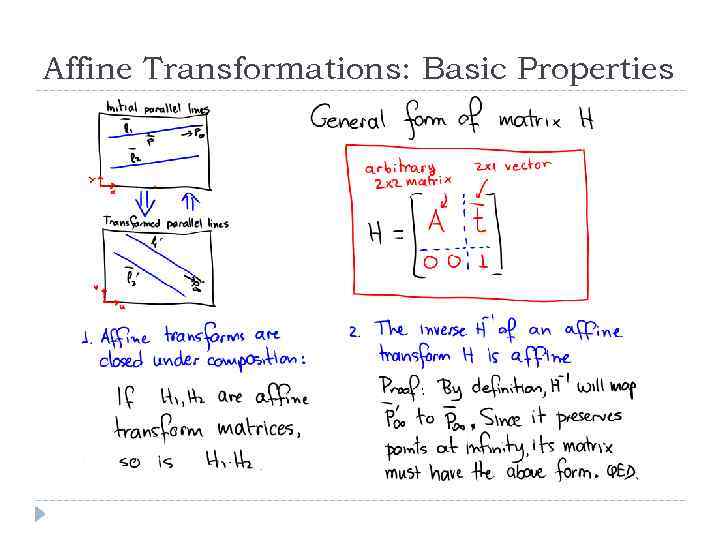 Affine Transformations: Basic Properties
Initial parallel lines
l̄₁
p̄
→p̄∞
l̄₂
Transformed parallel lines
l̄'
l̄₂'
General form of matrix H
arbitrary
2x2 matrix
2x1 vector
H = [ A t̄
0 0 1 ]
1. Affine transforms are
closed under composition:
If H₁,H₂ are affine
transform matrices,
so is H₁·H₂.
2. The inverse H⁻¹ of an affine
transform H is affine
Proof: By definition, H⁻¹ will map
p̄'∞ to p̄∞. Since it preserves
points at infinity, its matrix
must have the above form. QED.